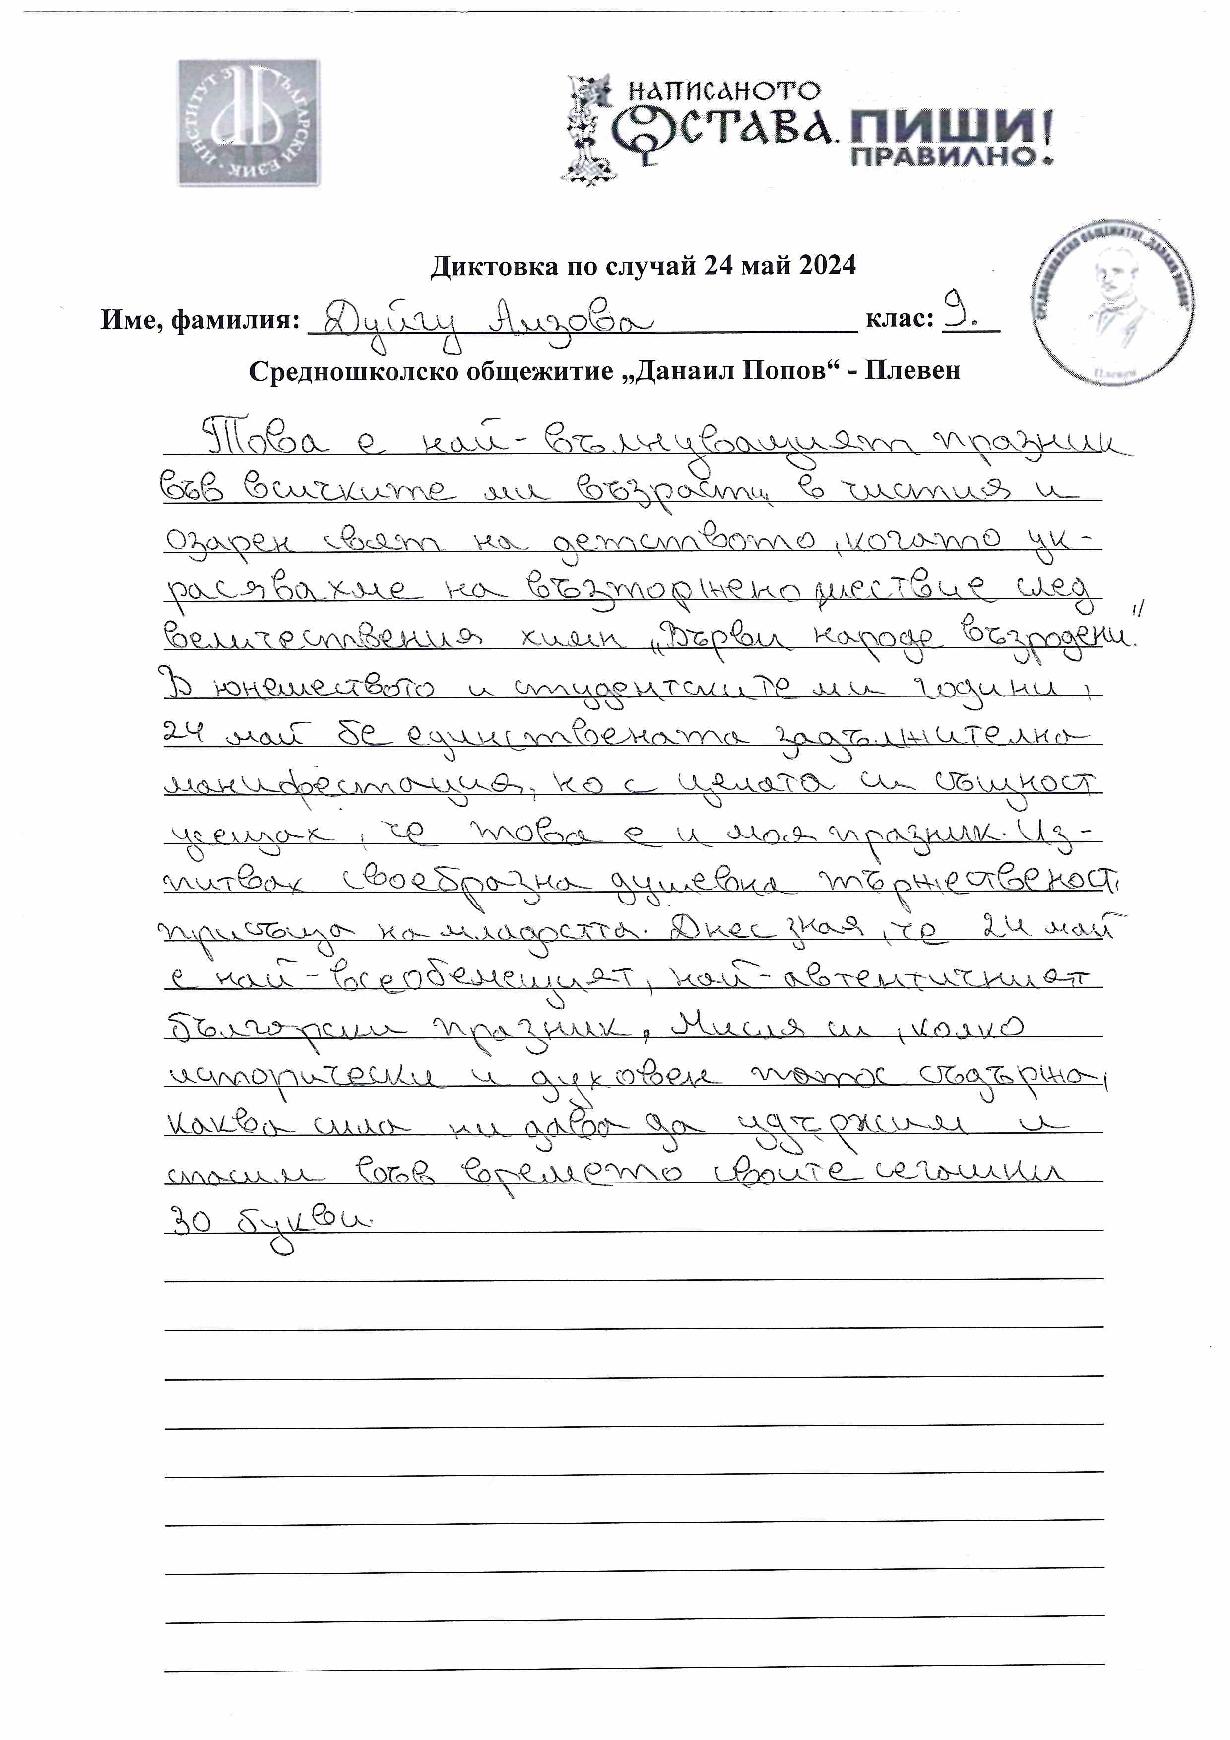 ИНСТИТУТ ЗА БЪЛГАРСКИ ЕЗИК
НАПИСАНОТО
ОСТАВА. ПИШИ
ПРАВИЛНО!
Диктовка по случай 24 май 2024
Име, фамилия: Дуйгу Ализова клас: 9.
Средношколско общежитие „Данаил Попов“ - Плевен
СРЕДНОШКОЛСКО ОБЩЕЖИТИЕ „ДАНАИЛ ПОПОВ“
Плевен
Това е най-вълнуващият празник
във всичките ми възрасти в чистия и
озарен свят на детството, когато ук-
расявахме на възторжено шествие след
величествения химн „Върви народе възродени“.
В юношеството и студентските ми години,
24 май бе единствената задължителна
манифестация, но с цялата си същност
усещах, че това е и моя празник. Из-
питвах своеобразна душевна тържественост
присъща на младостта. Днес зная, че 24 май
е най-всеобемещият, най-автентичният
български празник, Мисля си, колко
исторически и духовен патос съдържа,
каква сила ни дава да удържим и
спасим във времето своите сегашни
30 букви.